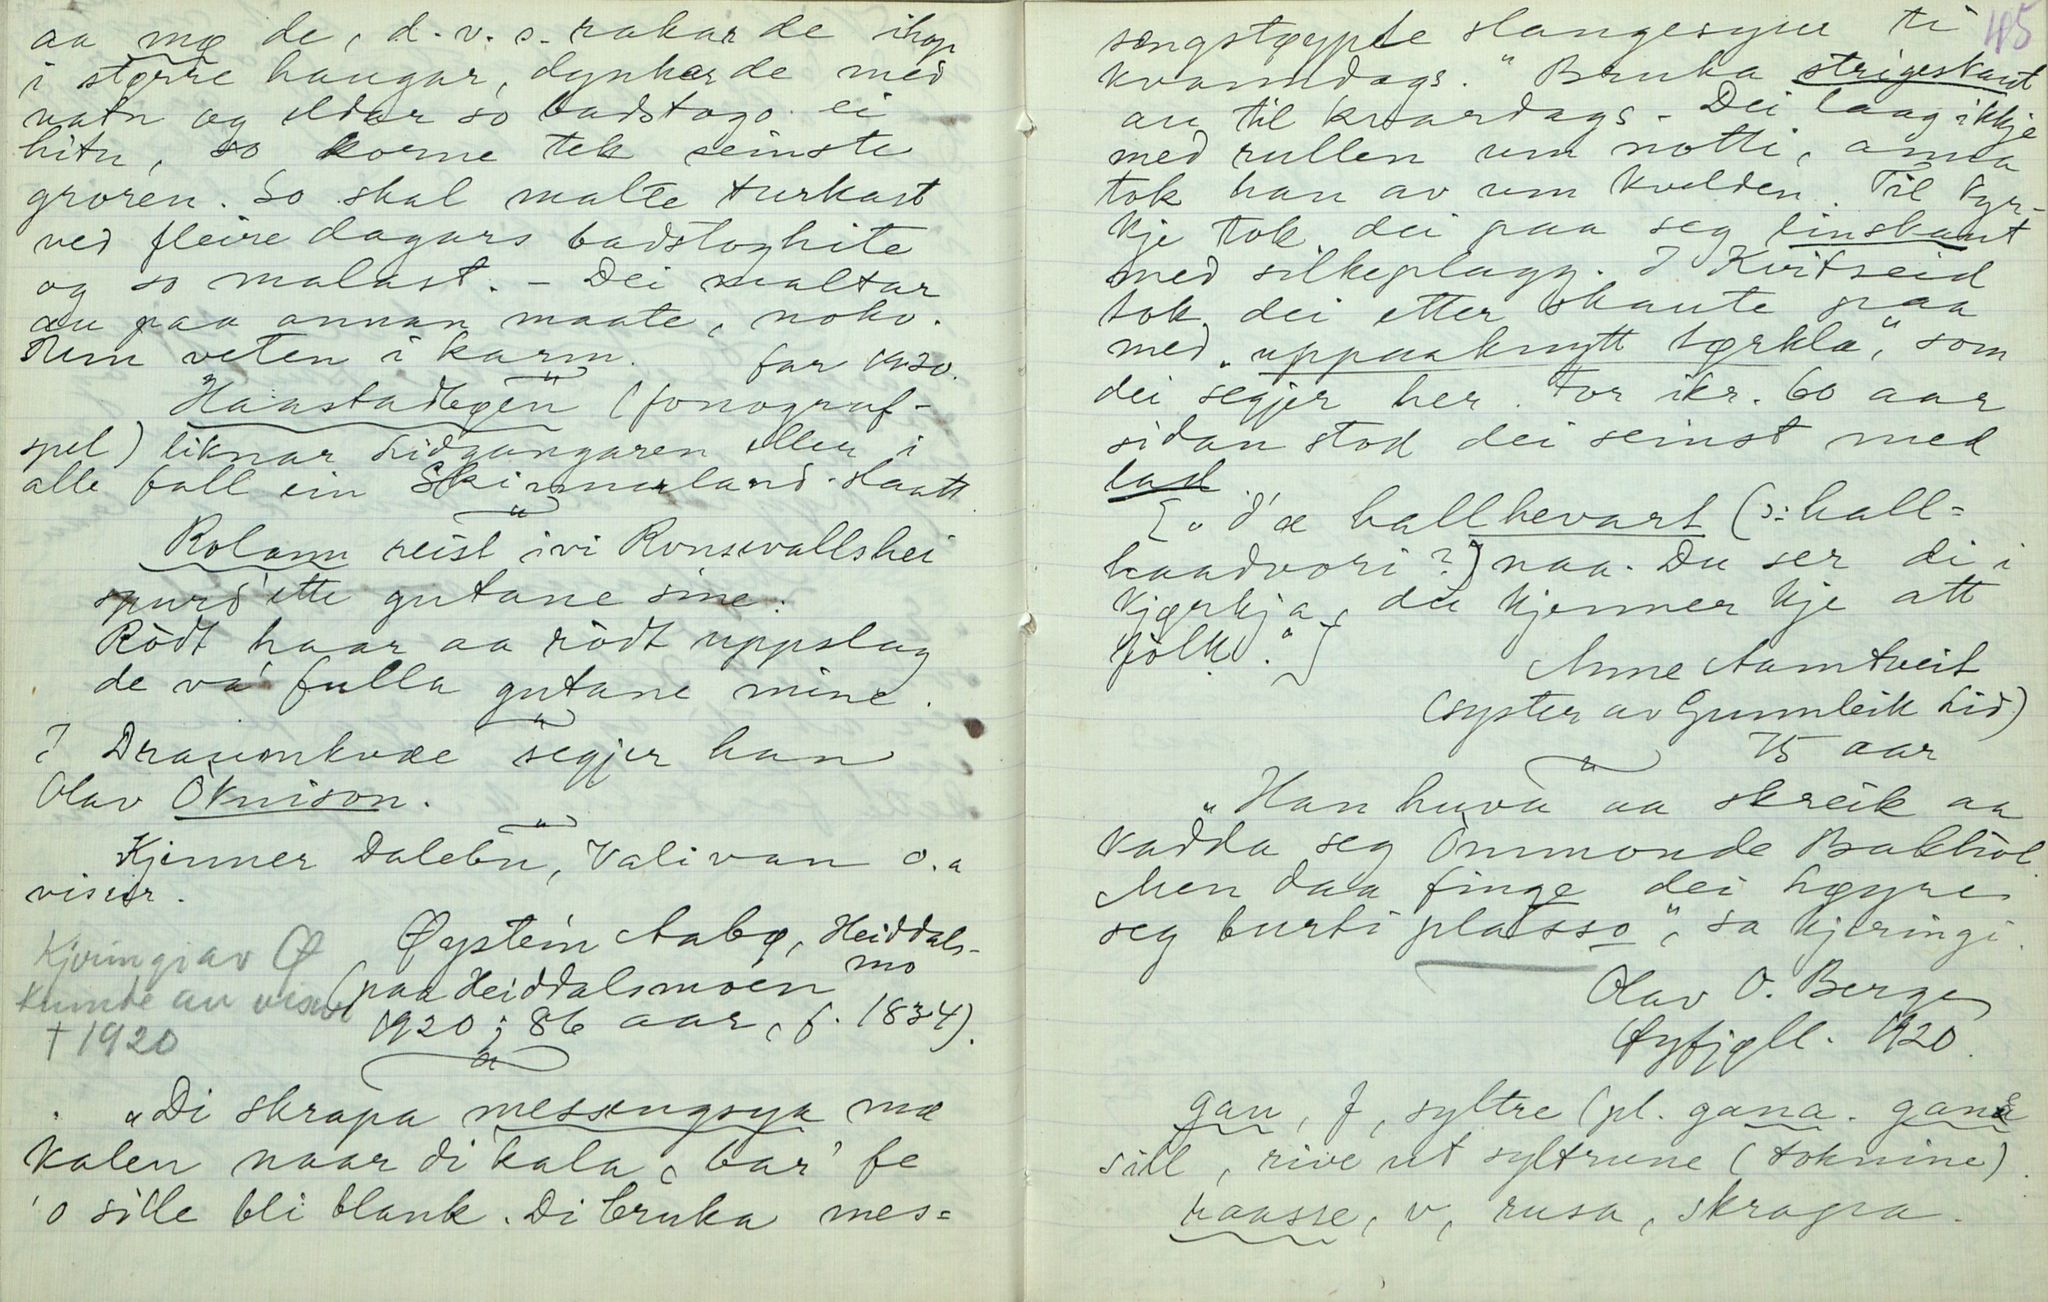 aa mæ de, d.v.s. rakar de ihop
i større haugar, dynkar de med
vatn og eldar so badstogo ei
hitu, so korne tek seinste
groren. So skal malte turkast
ved fleire dagars badstoghite
og so malast. - Dei maltar
au paa annan maate, noko.
veten i karm. far 1920.
Haastadlegjen (fonograf-
spel) liknar Lidgangaren eller i
alle fall ein Skinnarland-slaatt.
Rolann reist ivi Ronsevallshei
spurd' ette gutane sine:
Rödt haar aa rödt uppslag
de va' fulla gutane mine.
I Draumkvæe segjer han
Olav Òknison.
Kjenner Dalebu, Valivan o.a
visur.
Øystein Aabø, Heiddals-
mo
(paa Heiddalsmoen
1920; 86 aar, f. 1834).
Kjeringi av Ø
kunde au visur
† 1920
„Di skrapa messengsya mæ
kalen naar di kala, bar' fe
'o sille bli blank. Di bruka mes=
45
sengstøypte slangesyur ti
kvanndags." Bruka strigeskaut
au til kvardags. Dei laag ikkje
med rullen um notti, anna
tok han av um kvelden. Til kyr-
kje tok dei paa seg linskaut
med silkeplagg. I Kvitseid
tok dei etter skaute paa
med „uppaaknytt tørkla", som
dei segjer her. For ikr. 60 aar
sidan stod dei seinst med
lad
{„d'æ hallhevart (ɔ: hall=
haadvori?) naa. Du ser di i
kjørkja, du kjenner kje att
folk."}
Anne Aamtveit
(syster av Gunnleik Lid)
75 aar
„Han huva aa skreik aa
kadda seg Òmmonde Bakhol.
Men daa finge dei høyre
seg burti plasso", sa kjeringi.
Olav O. Berge
Øyfjøll. 1920.
gan, f, syltre (pl. gana. gana
sill, rive ut syltrune (toknine).
raasse, v, rusa, skrapa.